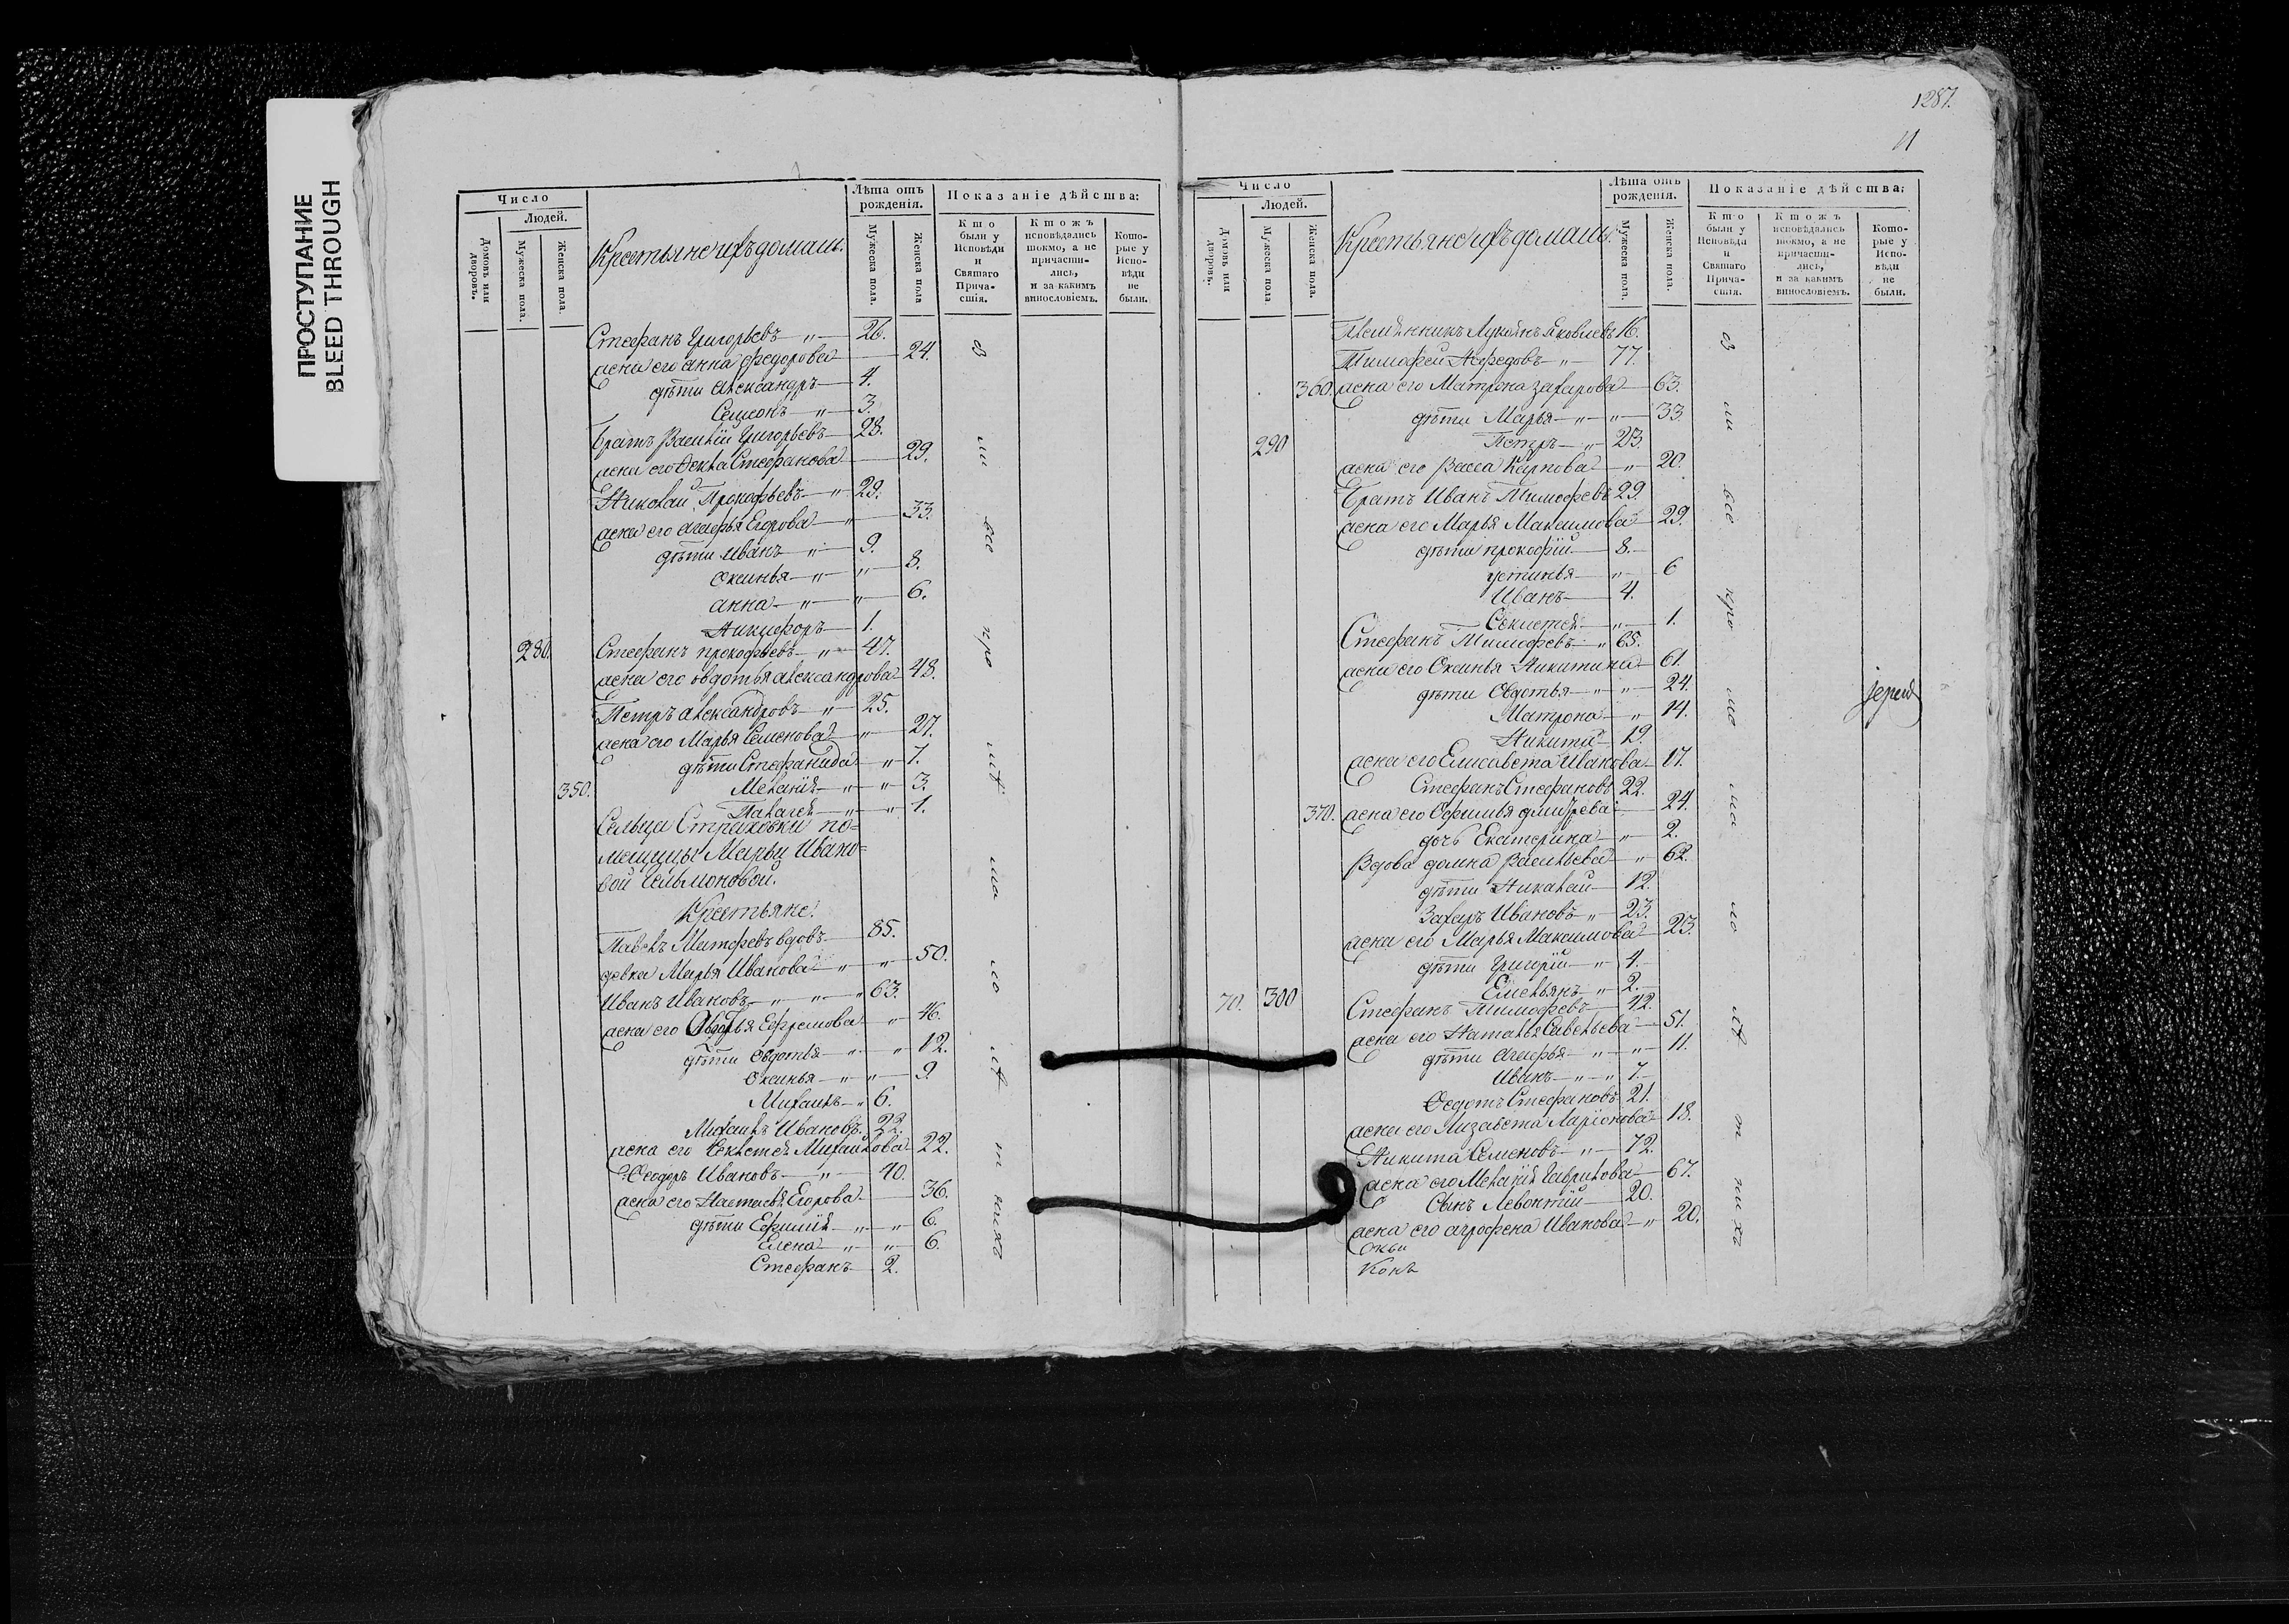 ПРОСТУПАНИЕ
BLEED THROUGH
Число
Людей.
Домовъ или дворовъ.
Мужеска пола.
Женска пола
Крестьяне ихъ домашн.
Лѣта отъ рожденія.
Мужеска пола.
Женска пола
Показаніе дѣйства:
Кто были у Исповѣди и Святаго Прича-стія.
Ктожъ исповѣдались токмо, а не причасти-лись, и за какимъ винословіемъ.
Кото-рые у Испо-вѣди не были.
Стефанъ Григорьевъ 26.
жена его анна федорова 24.
дѣти александръ 4.
Семіонъ 3.
братъ Василій Григорьевъ 28.
жена его Стефанова 29.
Николай Прокофьевъ 29.
жена его агафья Егорова 33.
дѣти иванъ 9.
оксинья 8.
анна 6.
Никифоръ 1.
280. Стефанъ прокофьевъ 47.
жена его овдотья александрова 48.
Петръ александровъ 25.
жена его Марья Семенова 27.
дѣти Стефанида 7.
350. Меланія 3.
Палагея 1.
Сельца Страховки по=
мещицы Марьи Ивано=
вой
Крестьяне.
Павелъ Матфевъ вдовъ 85.
девка Марья Иванова 50.
Иванъ Ивановъ 63.
жена его Авдотья Ефремова 46.
дѣти овдотья 12.
оксинья 9.
Михаилъ 6.
Михаилъ Ивановъ 22.
жена его Секлетея Михаилова 22.
Феодоръ Ивановъ 40.
жена его Настасья Егорова 36.
дѣти Ефимія 6.
Елена 6.
Стефанъ 2.
1287.
11
Число
Людей.
Домовъ или дворовъ.
Мужеска пола
Женска пола.
Крестьяне ихъ домашн.
Лѣта отъ рожденія.
Мужеска пола.
Женска пола.
Показаніе дѣйства:
Кто были у Исповѣди и Святаго Прича-стія.
Ктожъ исповѣдались токмо, а не причасти-лись, и за какимъ винословіемъ.
Кото-рые у Испо-вѣди не были.
Племянникъ Лукіянъ Яковлевъ 16.
Тимофей Нефедовъ 77.
360. жена его Матрона захарова 63.
дѣти Марья 33
290 Петръ 23
жена его Васса Карпова 20.
братъ Иванъ Тимофевъ 29.
жена его Марья Максимова 29.
дѣти прокофій 8.
устинья 6
Иванъ 4.
Секлетея 1.
Стефанъ Тимофевъ 65.
жена его Оксинья Никитина 61.
дѣти Овдотья 24.
Матрона 14.
Никита 19.
жена его Елисавета Иванова 17.
Стефанъ Стефановъ 22.
370. жена его Офимья дмитрева 24.
дочь Екатерина 2.
Вдова домна Васильева 62.
дѣти Николай 12.
Захаръ Ивановъ 23.
жена его Марья Максимова 23.
дѣти Григорій 4.
70. 300 Емельянъ 2.
Стефанъ Тимофевъ 42.
жена его Наталья Савельева 51.
дѣти агафья 11.
Иванъ 7.
Федотъ Стефановъ 21.
жена его Лизавета Ларіонова 18.
Никита Семеновъ 72.
жена его Меланія Гаврилова 67.
Сынъ Левонтій 20.
жена его агрофена Иванова 20.
Конъ
іерей